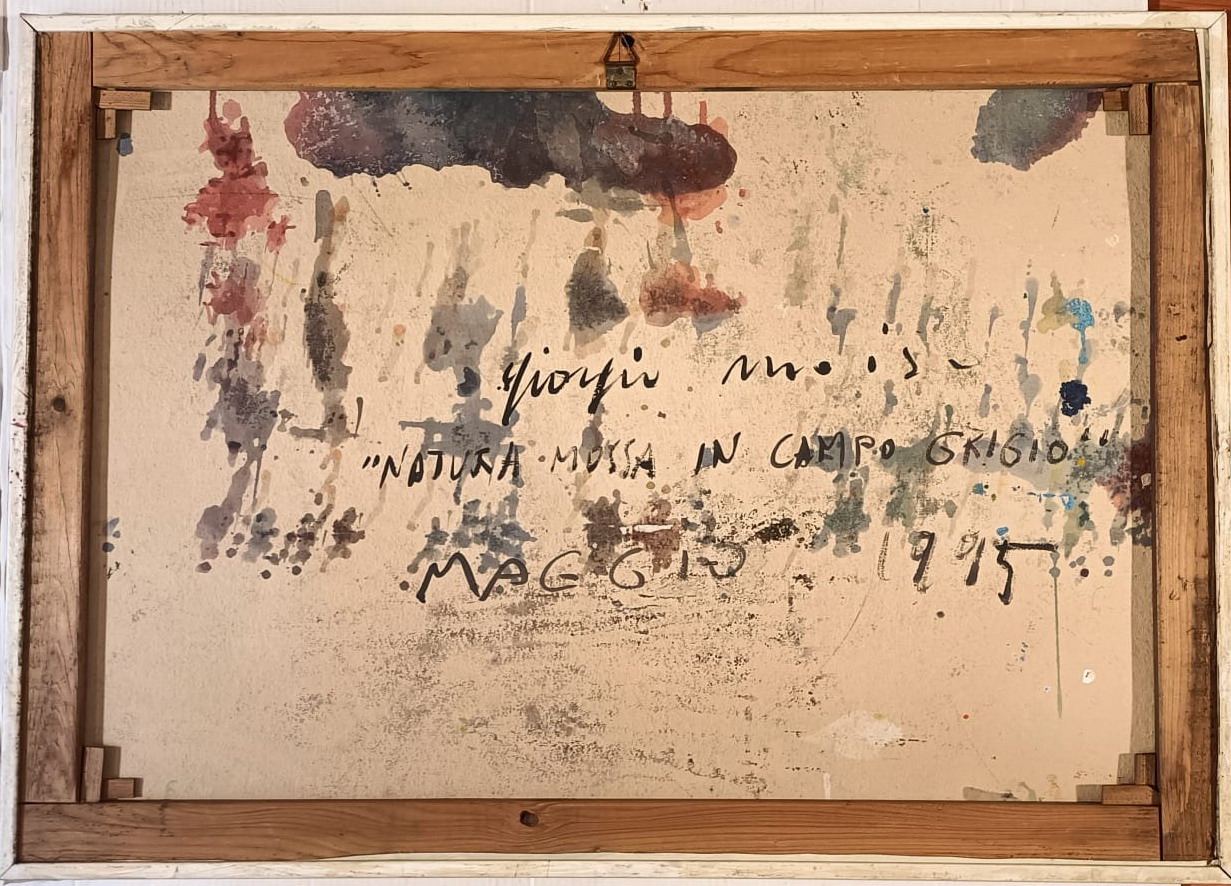 giorgio moiso
"NATURA MOSSA IN CAMPO GRIGIO"
MAGGIO 1995